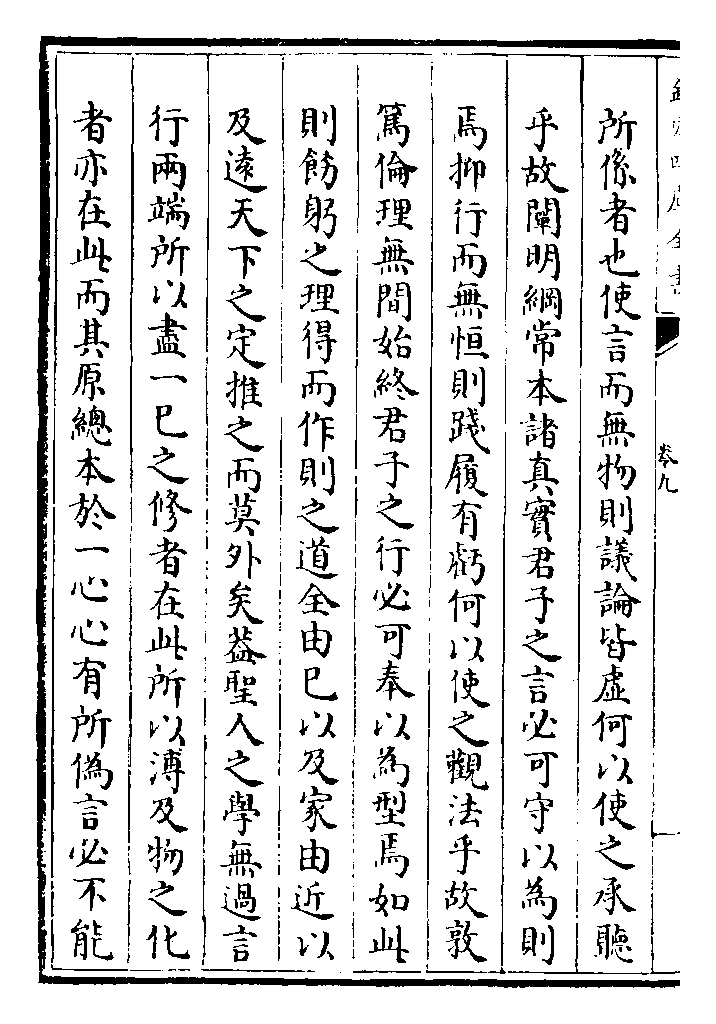 所係者也使言而無物則議論皆虛何以使之承聽
乎故闡明綱常本諸真實君子之言必可守以為則
焉抑行而無恒則踐履有虧何以使之觀法乎故敦
篤倫理無間始終君子之行必可奉以為型焉如此
則飭躬之理得而作則之道全由已以及家由近以
及遠天下之定推之而莫外矣葢聖人之學無過言
行兩端所以盡一已之修者在此所以溥及物之化
者亦在此而其原總本於一心心有所偽言必不能
卷九